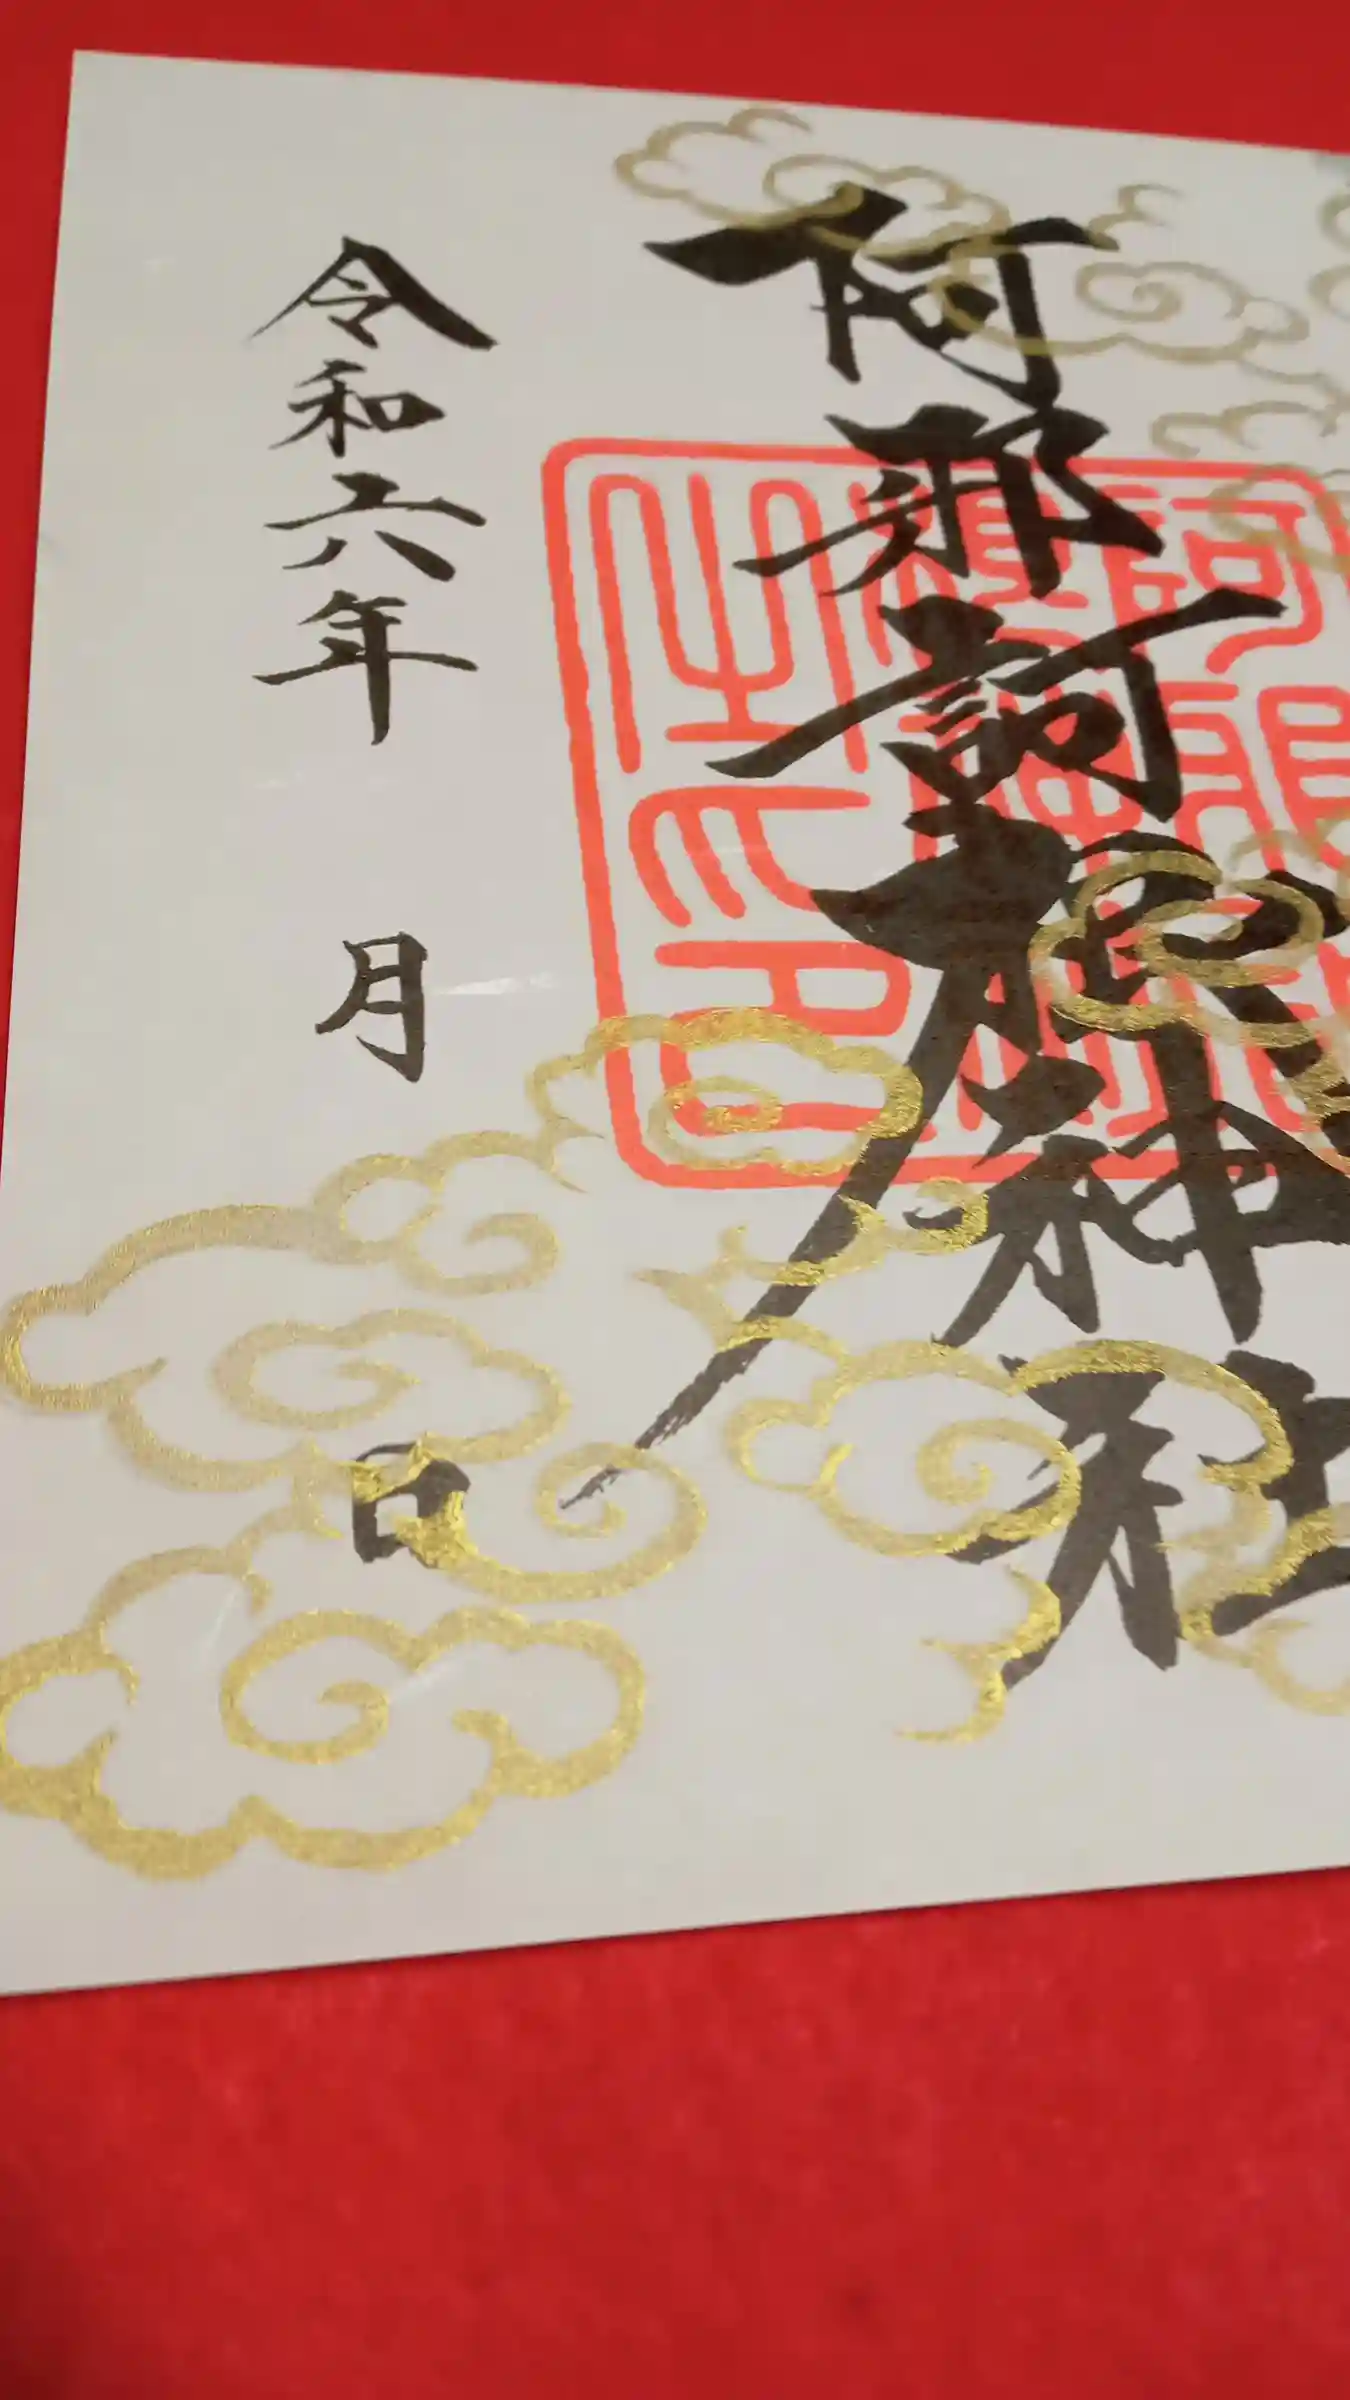 阿邪訶根神社
令和六年 月 日